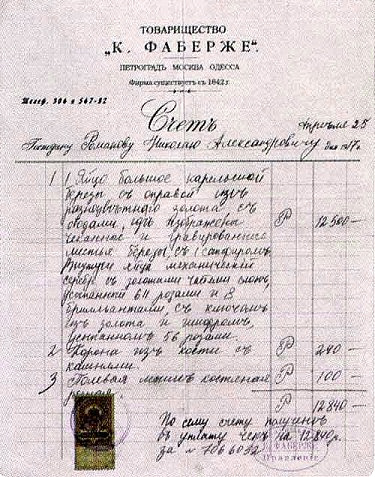 ТОВАРИЩЕСТВО
„К. ФАБЕРЖЕ“.
ПЕТРОГРАДЪ МОСКВА ОДЕССА
Фирма существуетъ съ 1842 г.
Телеф. 306 и 567-82
Счетъ
Апреля 25
Господину Романову Николаю Александровичу дня 1917 г.
1 1 Яйцо большое карельской
березы съ оправой изъ
разноцветного золота съ
сводами, где изображены
чеканное и гравированные
листья березы, съ 1 сапфиромъ. Р 12.500—
Внутри яйца механический
серебр съ золотыми слонъ,
усыпанный 611 розами и 8
бриллиантами, съ ключомъ
изъ золота и шифромъ,
усыпанномъ 56 розами.
2 Корона изъ кости съ Р 240—
камнями
3 Полевая костеная Р 100—
Р 12840—
По сему счету получено
въ уплату чекъ на 12,840 р.
за № 7066092
ФАБЕРЖЕ
Правление